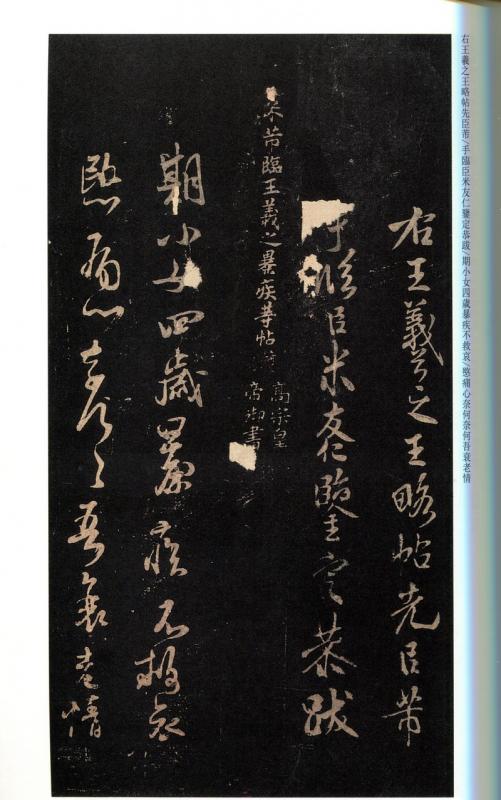 右王羲之王略帖先臣芾/手臨臣米友仁鑒定恭跋/期小女四歲暴疾不救哀/愍痛心奈何奈何吾衰老情
右王羲之王略帖先臣芾
手臨臣米友仁鑒定恭跋
米芾臨王羲之暴疾等帖
高宗皇
帝御書
期小女四歲暴疾不救哀
愍痛心奈何々吾衰老情